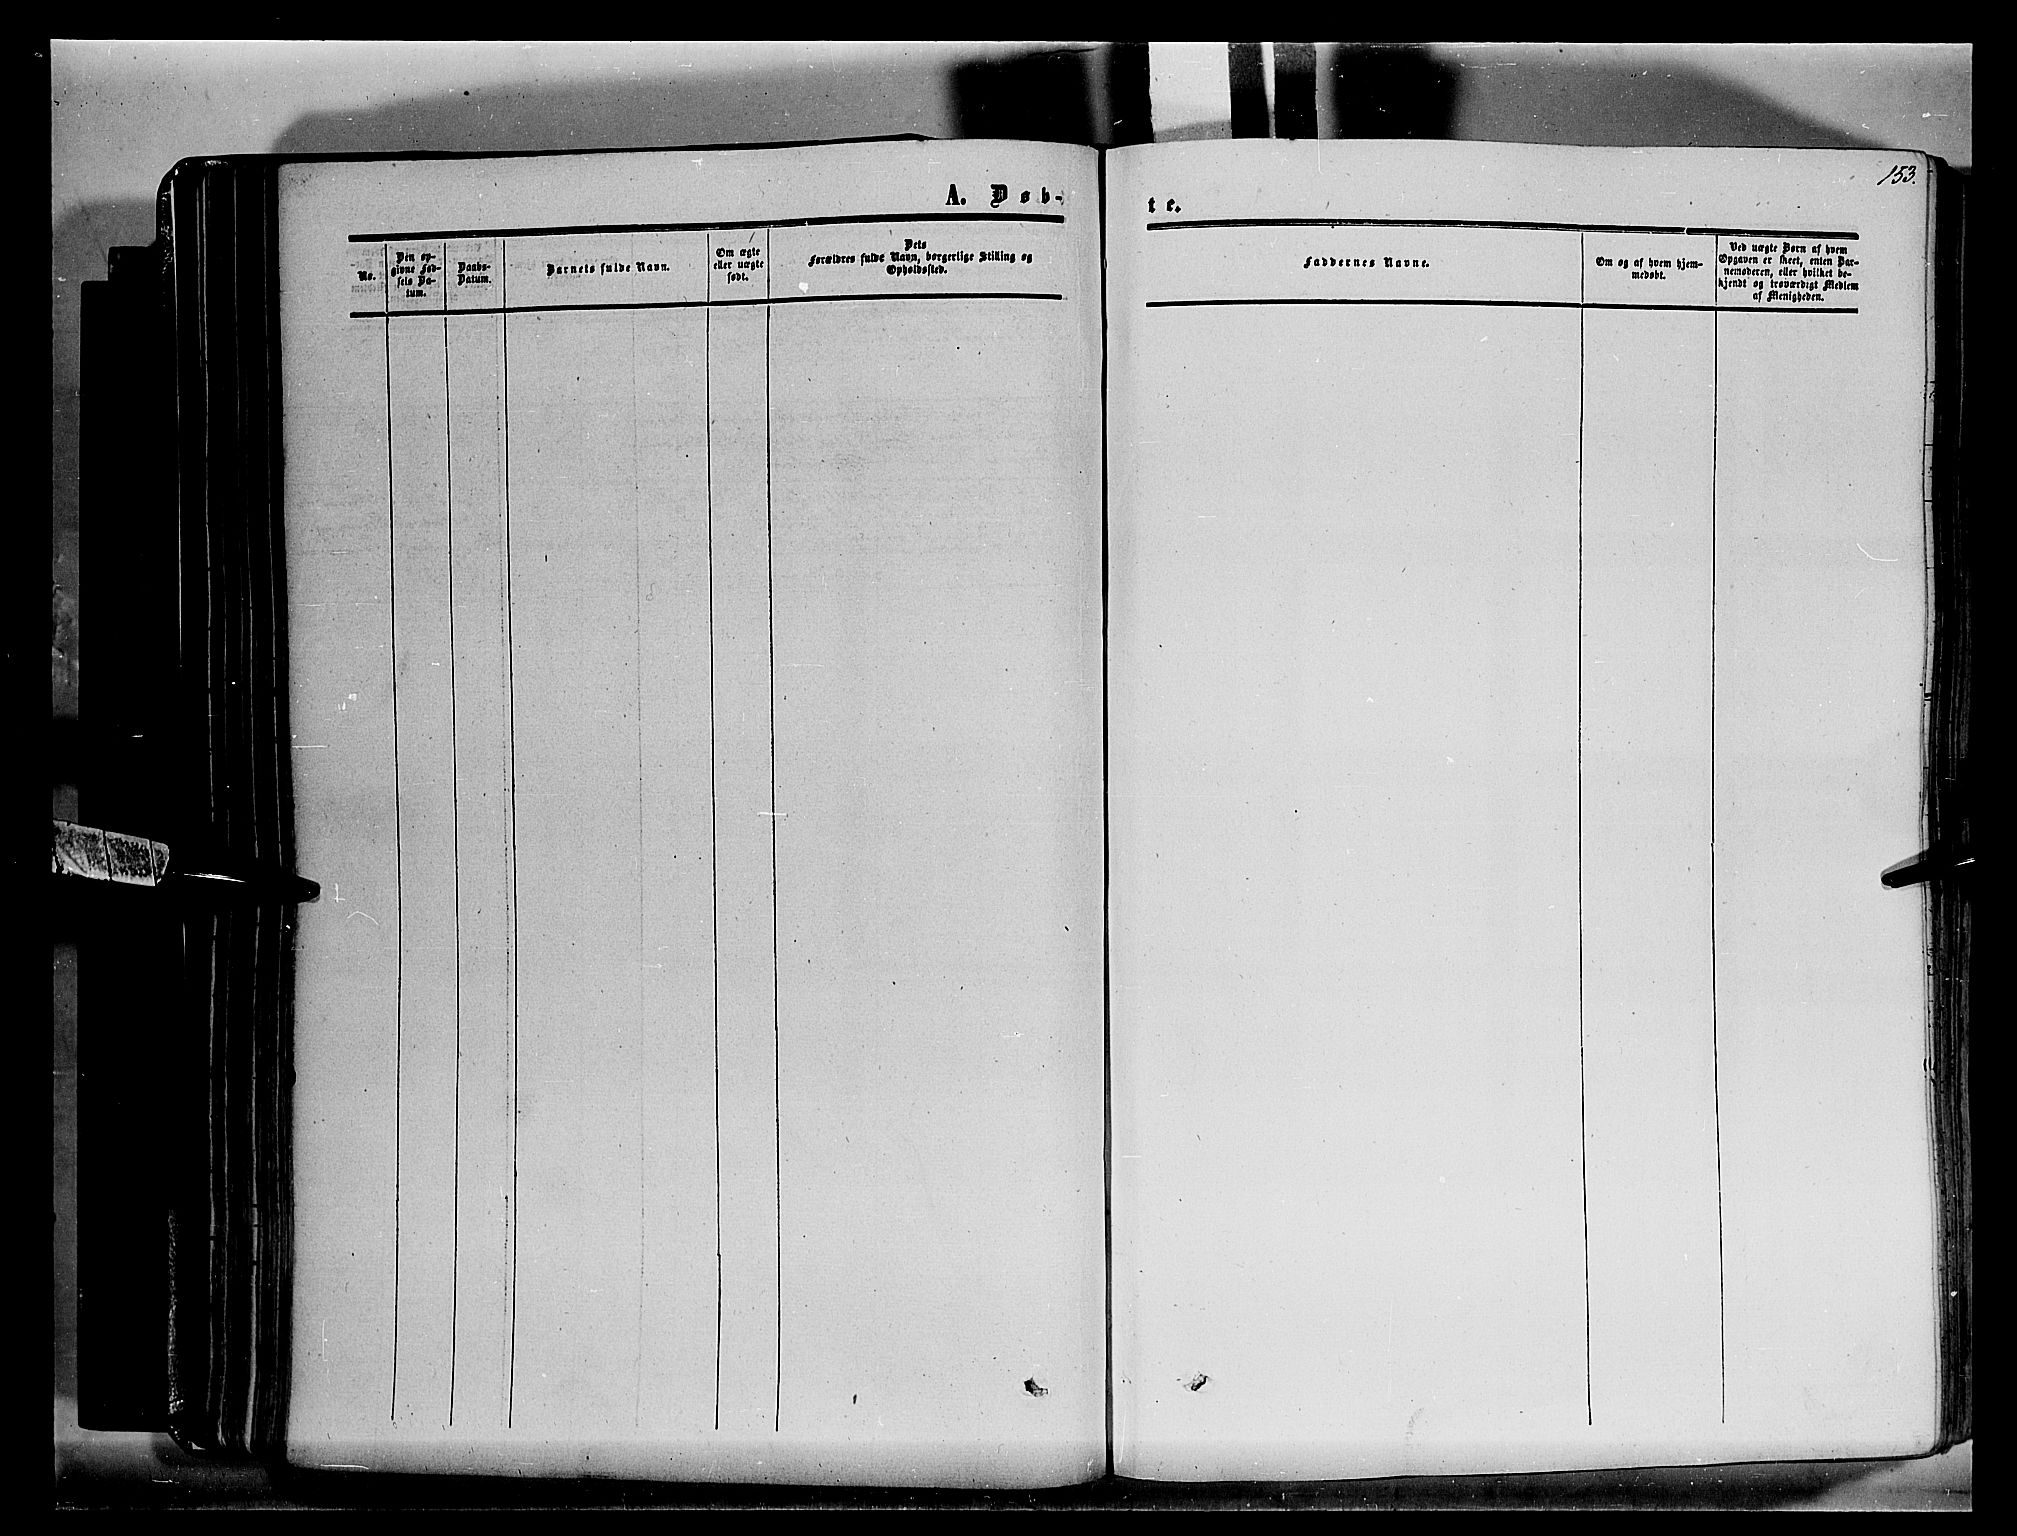 153.
A. Døb-
te.
No.
Den op-
givne Fød-
sels Da-
tum.
Daabs-
Datum.
Barnets fulde Navn.
Om ægte
eller uægte
født.
Dets
Forældres fulde Navn, borgerlige Stilling og
Opholdssted.
Faddernes Navne.
Om og af hvem hjem-
medøbt.
Ved uægte Børn af hvem
Opgaven er skeet, enten Bar-
nemoderen, eller hvilket be-
kjendt og troværdigt Medlem
af Menigheden.